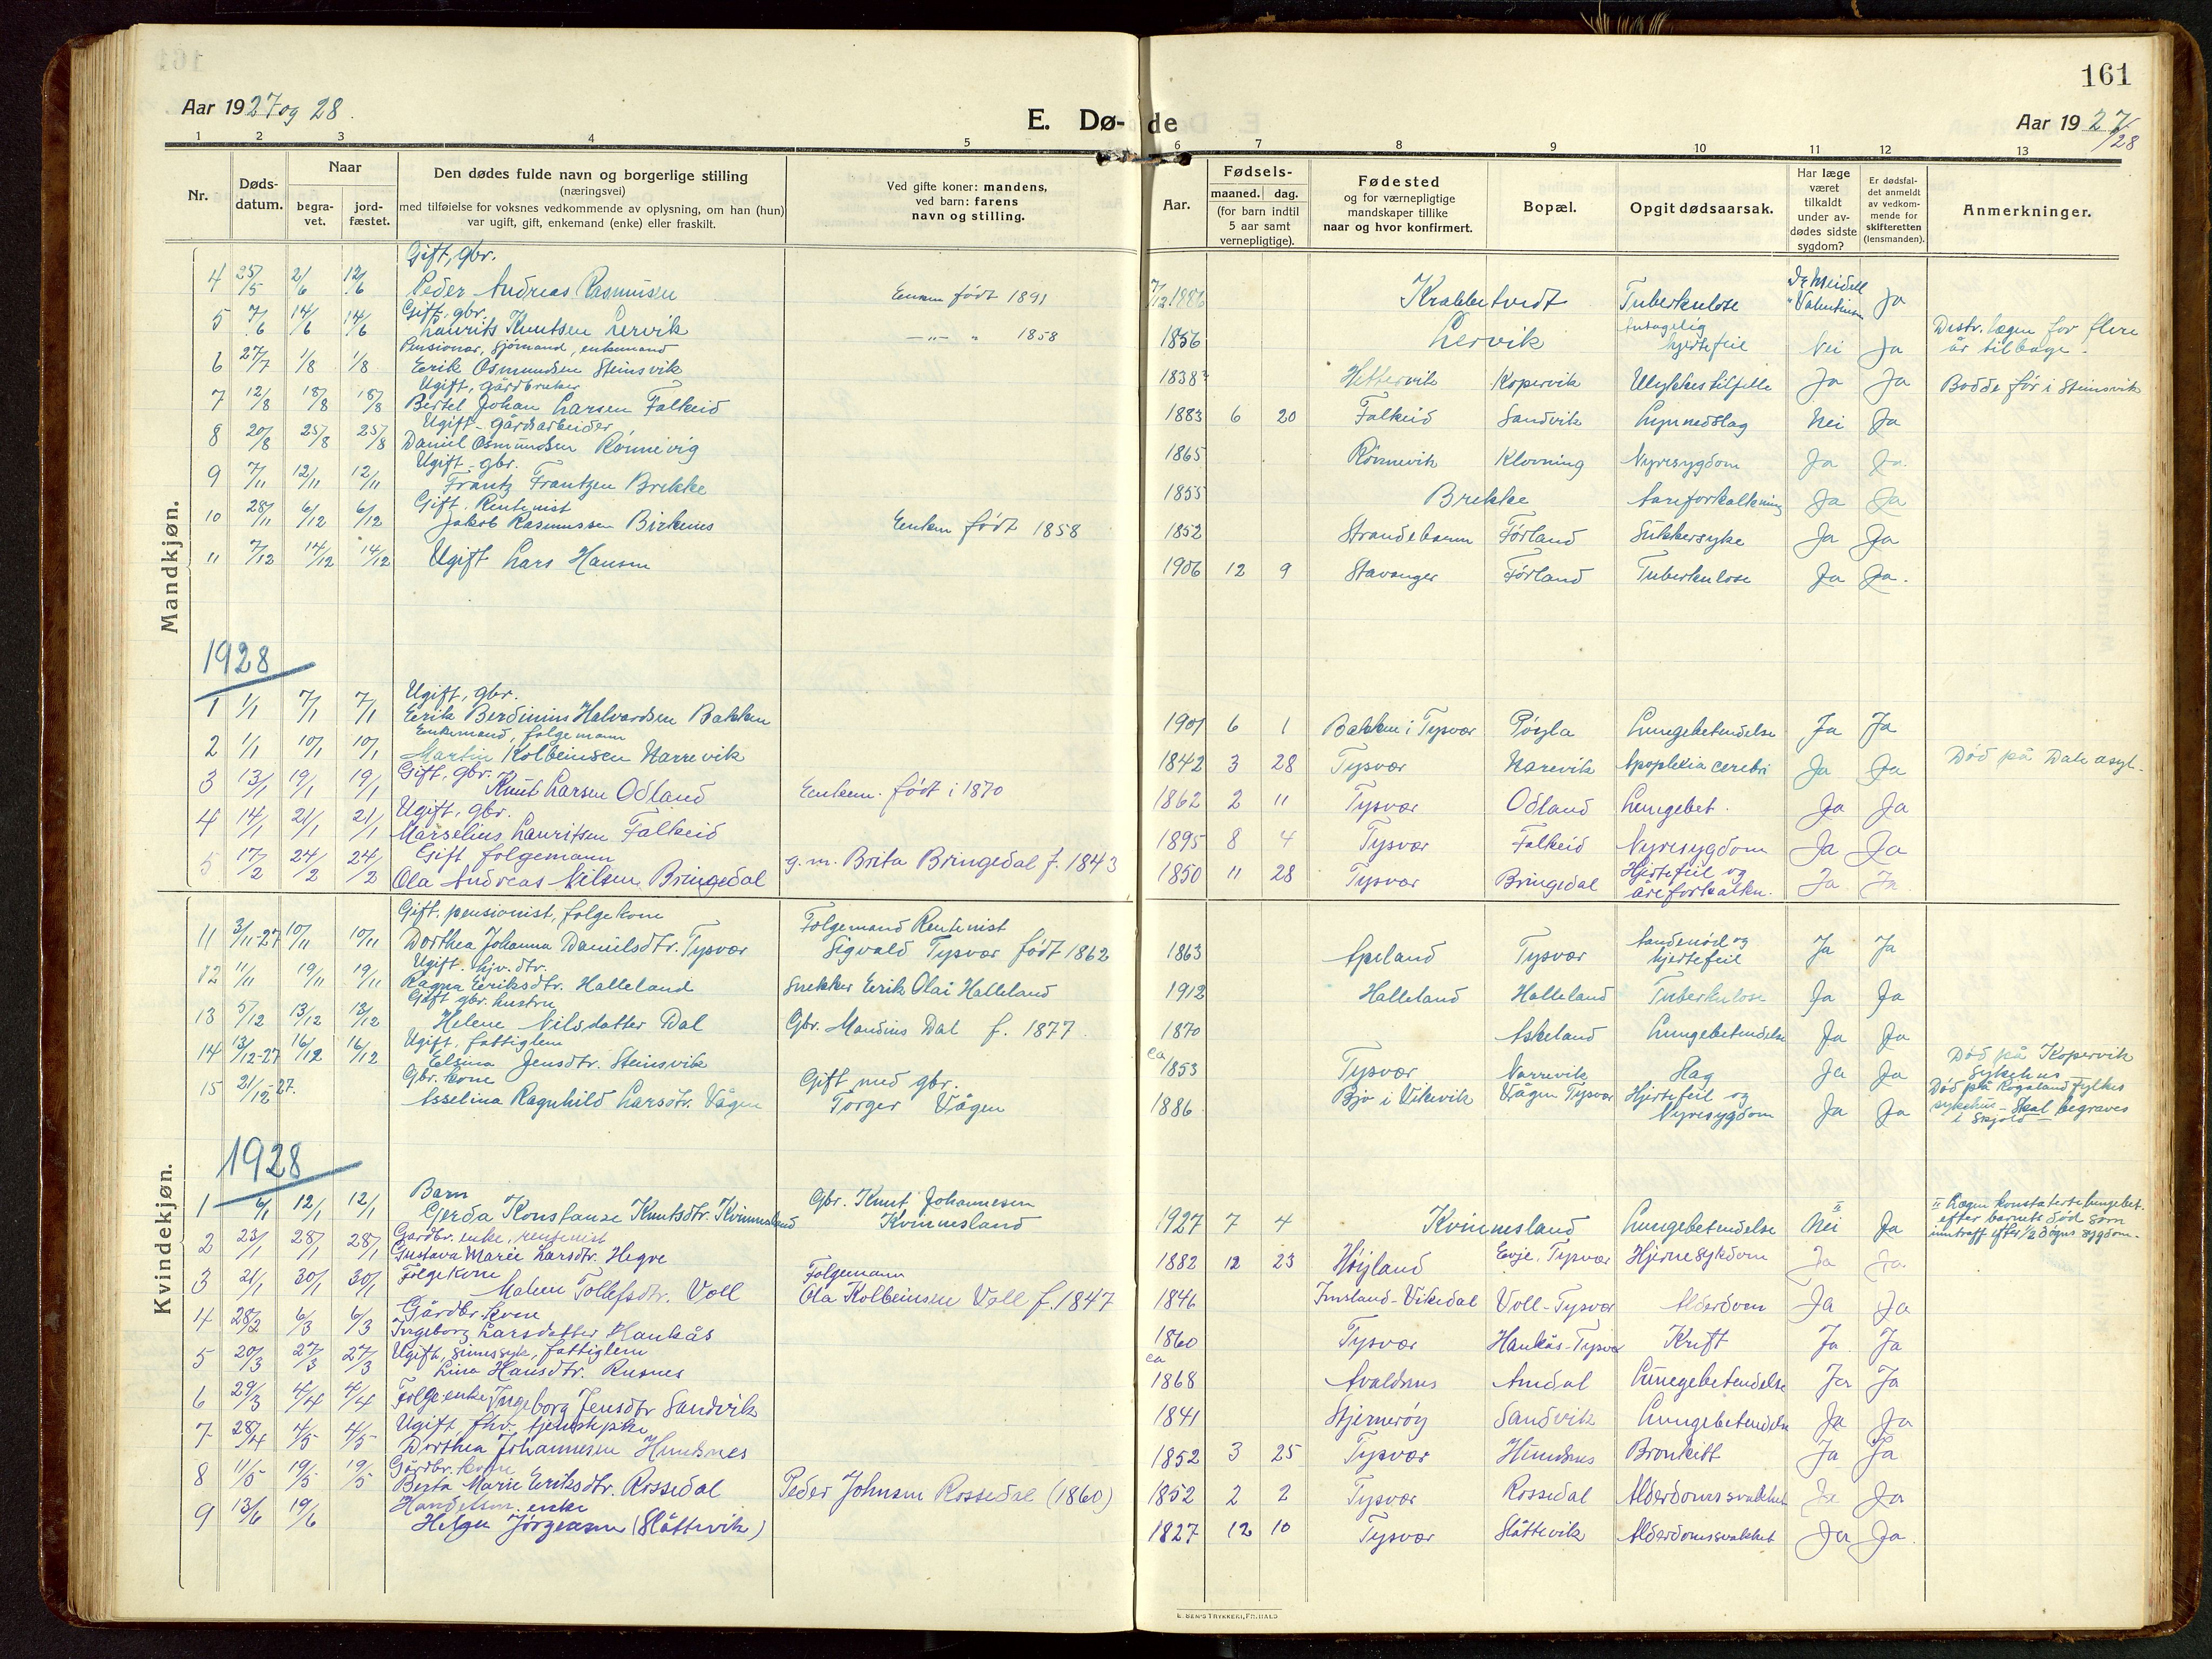 161
Aar 1927 og 28.
E. Dø-de
Aar 1927/28
1 2 3 4 5 6 7 8 9 10 11 12 13
Nr.
Døds-datum.
Naar
begra-vet.
jord-fæstet.
Den dødes fulde navn og borgerlige stilling
(næringsvei)
med tilføielse for voksnes vedkommende av oplysning, om han (hun)
var ugift, gift, enkemand (enke) eller fraskilt.
Ved gifte koner: mandens,
ved barn: farens
navn og stilling.
Aar.
Fødsels-
maaned. dag.
(for barn indtil
5 aar samt
vernepligtige).
Fødested
og for værnepligtige
mandskaper tillike
naar og hvor konfirmert.
Bopæl.
Opgit dødsaarsak.
Har læge
været
tilkaldt
under av-
dødes sidste
sygdom?
Er dødsfal-
det anmeldt
av vedkom-
mende for
skifteretten
(lensmanden).
Anmerkninger.
Mandkjøn.
Gift, gbr.
4 25/5 2/6 12/6 Peder Andreas Rasmussen Enken født 1891 7/12 1886 Krabbetvedt Tuberkulose Ja
Gift, gbr.
5 7/6 14/6 14/6 Laurits Knutsen Lervik —"— " 1858 1856 Lervik hjertefeil Nei Ja Distr. lægen for flere år tilbage.
Pensionær, Sjömand, enkemand
6 27/7 1/8 1/8 Erik Osmundsen Steinsvik 1838? Hettervik Kopervik Ulykkestilfelle Ja Ja Bodde før i Steinsvik
Ugift, gårdbruker
7 12/8 18/8 18/8 Bertel Johan Larsen Falkeid 1883 6 20 Falkeid Sandvik Lynnedslag Nei Ja
Ugift - gårdsarbeider
8 20/8 25/8 25/8 Daniel Osmundsen Rønnevig 1865 Rønnevik Klovning Nyresygdom Ja Ja
Ugift - gbr.
9 7/11 12/11 12/11 Frantz Frantzen Brekke 1855 Brekke Aareforkalkning Ja Ja
Gift, Rentenist
10 28/11 6/12 6/12 Jakob Rasmussen Birkenes Enken født 1858 1852 Strandebarm Førland Sukkersyke Ja Ja
11 7/12 14/12 14/12 Ugift Lars Hansen 1906 12 9 Stavanger Førland Tuberkulose Ja Ja.
1928
Ugift, gbr.
1 1/1 7/1 7/1 Erik Berdinius Halvardsen Bakken 1901 6 1 Bakken i Tysvær Pøyla Lungebetendelse Ja Ja
Enkemand, følgemann
2 1/1 10/1 10/1 Martin Kolbeinsen Narrevik 1842 3 28 Tysvær Narevik Apoplexia cerebri Ja Ja Død på Dale asyl.
Gift, gbr.
3 13/1 19/1 19/1 Knut Larsen Odland Enken. født i 1870 1862 2 11 Tysvær Odland Lungebet. Ja Ja
Ugift, gbr.
4 14/1 21/1 21/1 Marselius Lauritsen Falkeid 1895 8 4 Tysvær Falkeid Nyresygdom Ja Ja
Gift følgemann
5 17/2 24/2 24/2 Ola Andreas Nilsen Bringedal g. m. Brita Bringedal f. 1843 1850 11 28 Tysvær Bringedal Hjertefeil og åreforkalkn. Ja Ja
Kvindekjøn.
Gift, pensionist, følgekone
11 3/11-27 10/11 10/11 Dorthea Johanna Danielsdtr. Tysvær Følgemand Rentenist Sigvald Tysvær født 1862 1863 Apeland Tysvær Aandenød og hjertefeil Ja Ja
Ugift. hjv. dtr.
12 11/11 19/11 19/11 Ragna Eriksdtr. Halleland Snekker Erik Olai Halleland 1912 Halleland Halleland Tuberkulose Ja Ja
Gift gbr. hustru
13 5/12 13/12 13/12 Helene Nilsdatter Dal Gbr. Mandius Dal f. 1877. 1870 Askeland Lungebetendelse Ja Ja
Ugift, fattiglem
14 13/12-27 16/12 16/12 Elsina Jensdtr. Steinsvik ca 1853 Tysvær Narrevik Slag Ja Ja Død på Kopervik Sykehus
Gbr. kone
15 21/12-27. Asselina Ragnhild Larsdtr. Vågen Gift med gbr. Torger Vågen 1886 Bjø i Vikevik Vågen Tysvær Hjertefeil og Nyresygdom Ja Ja Død på Rogaland Fylkes sykehus - Skal begraves i Skjold
1928
Barn
1 6/1 12/1 12/1 Gjerda Konstanse Knutsdtr. Kvinnesland Gbr. Knut Johannesen Kvinnesland 1927 7 4 Kvinnesland Lungebetendelse Nei Ja Lægen konstaterte lungebet. efter barnets død som inntraff efter 1/2 døgns sygdom.
Gårdbr. enke, rentenist
2 23/1 28/1 28/1 Gustava Marie Larsdtr. Hegre 1882 12 23 Høyland Evje, Tysvær Hjernesykdom Ja Ja
Følgekone
3 21/1 30/1 30/1 Malene Tollefsdtr. Voll Følgemann Ola Kolbeinsen Voll f. 1847 1846 Imsland-Vikedal Voll-Tysvær Alderdom Ja Ja
Gårdbr. kone
4 28/2 6/3 6/3 Ingeborg Larsdatter Haukås 1860 Tysvær Haukås-Tysvær Kreft Ja Ja
Ugift, sinnssyk, fattiglem
5 20/3 27/3 27/3 Lina Hansdtr. Rusnes ca 1868 Avaldsnes Amdal Lungebetendelse Ja Ja
6 29/3 4/4 4/4 Følgeenke Ingeborg Jensdtr Sandvik 1841 Stjernerøy Sandvik Lungebetendelse Ja Ja
Ugift, fhv. tjenestepike
7 28/4 4/5 4/5 Dorthea Johannesen Hundsnes 1852 3 25 Tysvær Hundsnes Bronkitt Ja Ja
Gårdbr. kone
8 11/5 19/5 19/5 Berta Marie Eriksdtr. Rossedal Peder Johnsen Rossedal (1860) 1852 2 2 Tysvær Rossedal Alderdomssvakhet Ja Ja
Handelsm. enke
9 13/6 19/6 Helga Jørgensen (Slåttevik) 1827 12 10 Tysvær Slåttevik Alderdomssvakhet Ja Ja